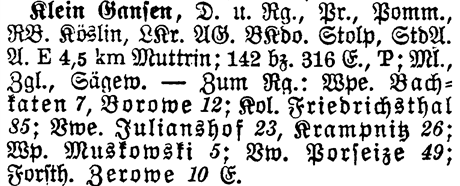 Klein Gansen, D. u. Rg., Pr., Pomm.,
RB. Köslin, LKr. AG. BKdo. Stolp, StdA.
A. E 4,5 km Muttrin; 142 bz. 316 E., P; Ml.,
Zgl., Sägew. — Zum Rg.: Wpe. Bach-
katen 7, Borowe 12; Kol. Friedrichsthal
85; Vwe. Julianshof 23, Krampnitz 26;
Wp. Muskowski 5; Vw. Porseize 49;
Forsth. Zerowe 10 E.